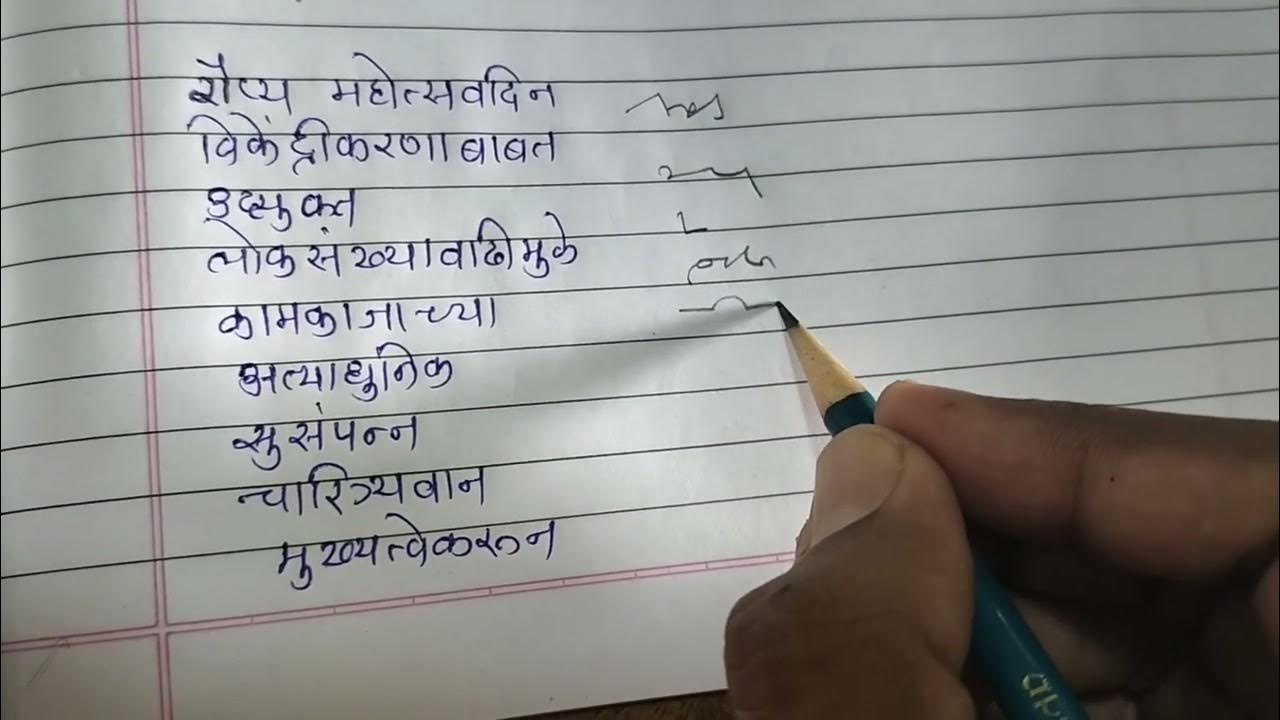 रौप्य महोत्सवदिन
विकेंद्रीकरणाबाबत
लोकसंख्यावाढीमुळे
कामकाजाच्या
अत्याधुनिक
सुसंपन्न
चारित्र्यवान
मुख्यत्वेकरून